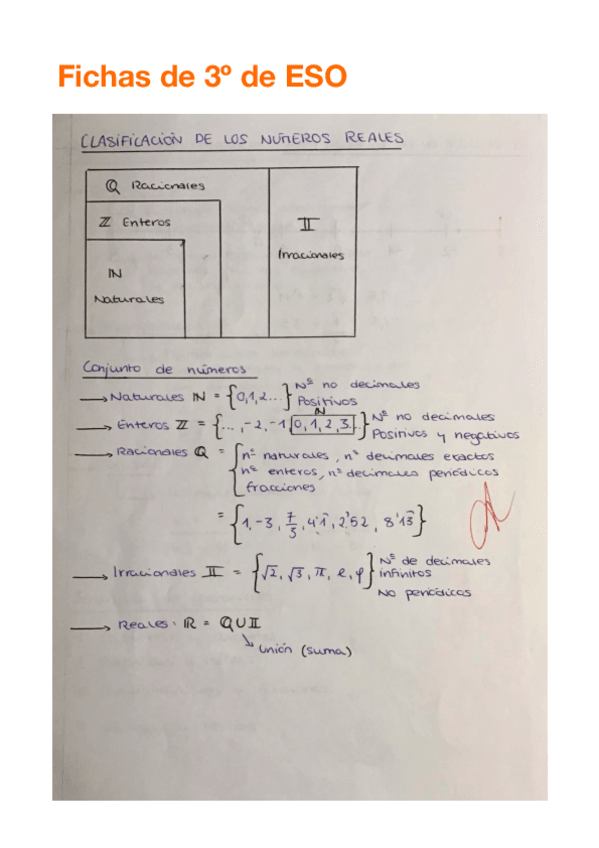 Fichas de 3º de ESO
CLASIFICACIÓN DE LOS NÚMEROS REALES
ℚ Racionales
ℤ Enteros
𝕀
Irracionales
ℕ
Naturales
Conjunto de números
→ Naturales ℕ = {0,1,2...} Nº no decimales
Positivos
ℕ
→ Enteros ℤ = {..., -2, -1, 0, 1, 2, 3...} Nº no decimales
Positivos y negativos
→ Racionales ℚ = {nº naturales, nº decimales exactos
nº enteros, nº decimales periódicos
fracciones
= {1, -3, 7/3, 4'1̂, 2'52, 8'13̂}
→ Irracionales 𝕀 = {√2, √3, π, e, φ} Nº de decimales
infinitos
No periódicos
→ Reales: ℝ = ℚ∪𝕀
↘ Unión (suma)